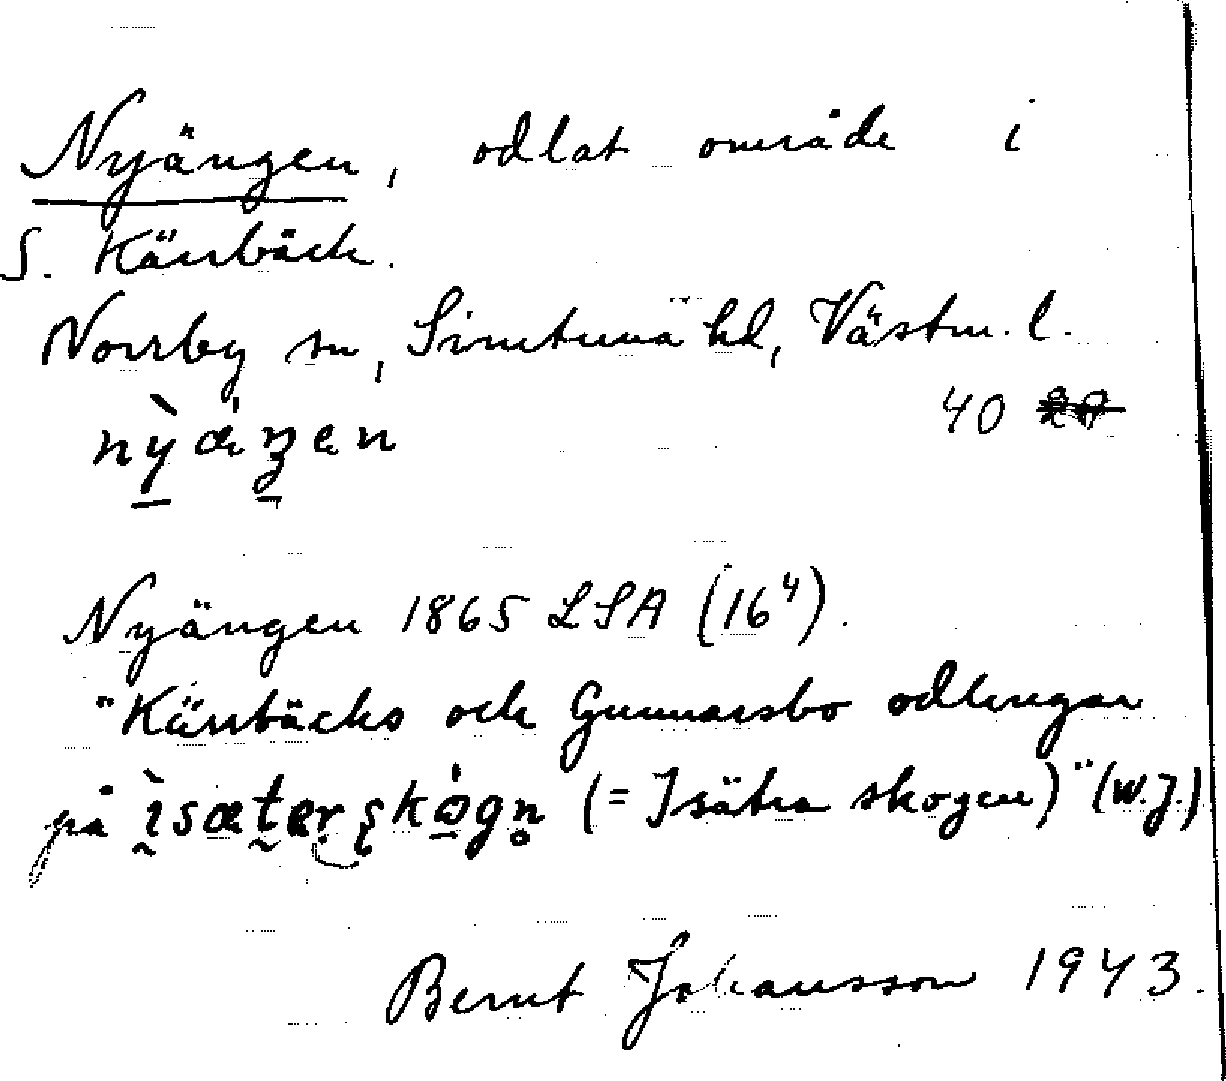 Nyängen, odlat område i
S. Kärrbäck.
Norrby sn, Simtuna hd, Västm. l.
nỳæ̇ŋen 40
Nyängen 1865 LSA (16⁴).
"Kärrbäcks och Gunnarsbo odlingar
på ìsæterskògn̥ (= Isätra skogen)" (W.J.)
Bernt Johansson 1943.